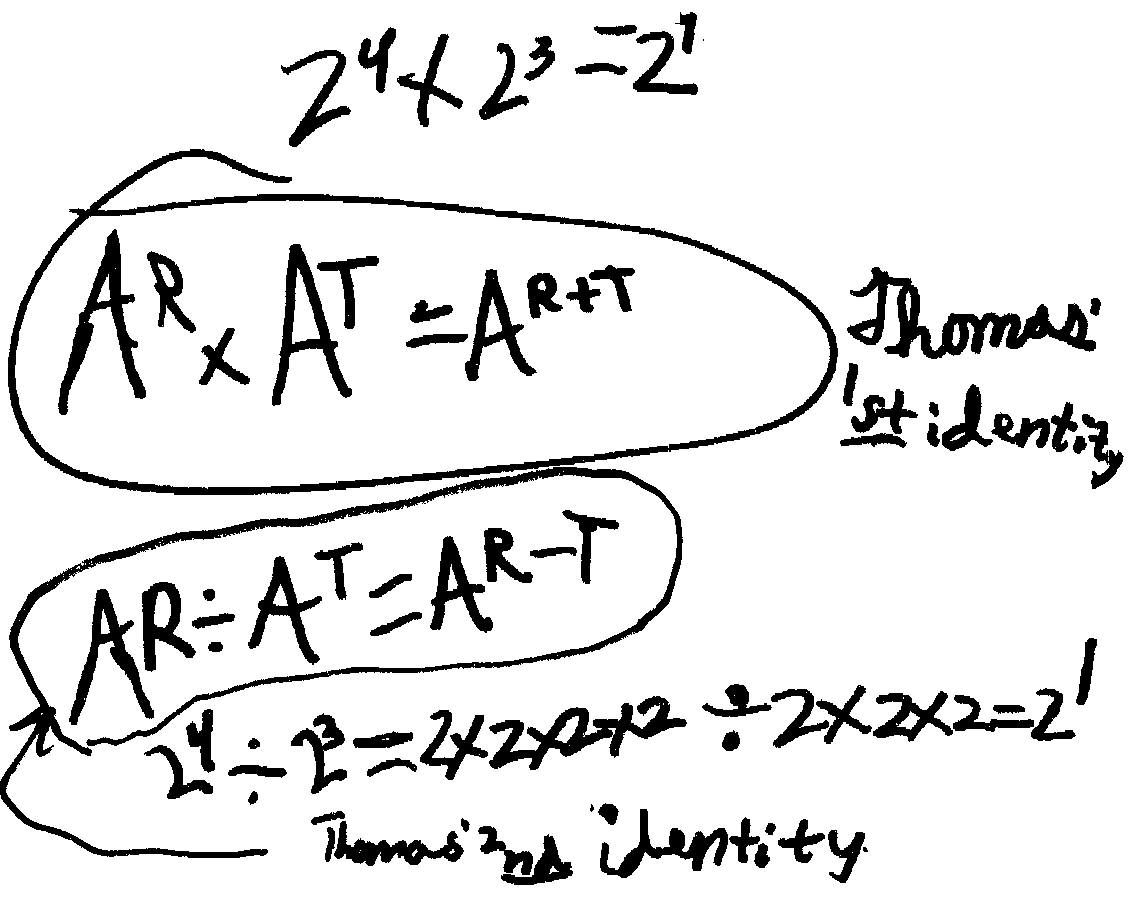 2⁴ × 2³ = 2¹
Aᴿ × Aᵀ = Aᴿ⁺ᵀ
Thomas'
1st identity
AR ÷ Aᵀ = Aᴿ⁻ᵀ
2⁴ ÷ 2³ = 2×2×2×2 ÷ 2×2×2 = 2¹
Thomas' 2nd identity